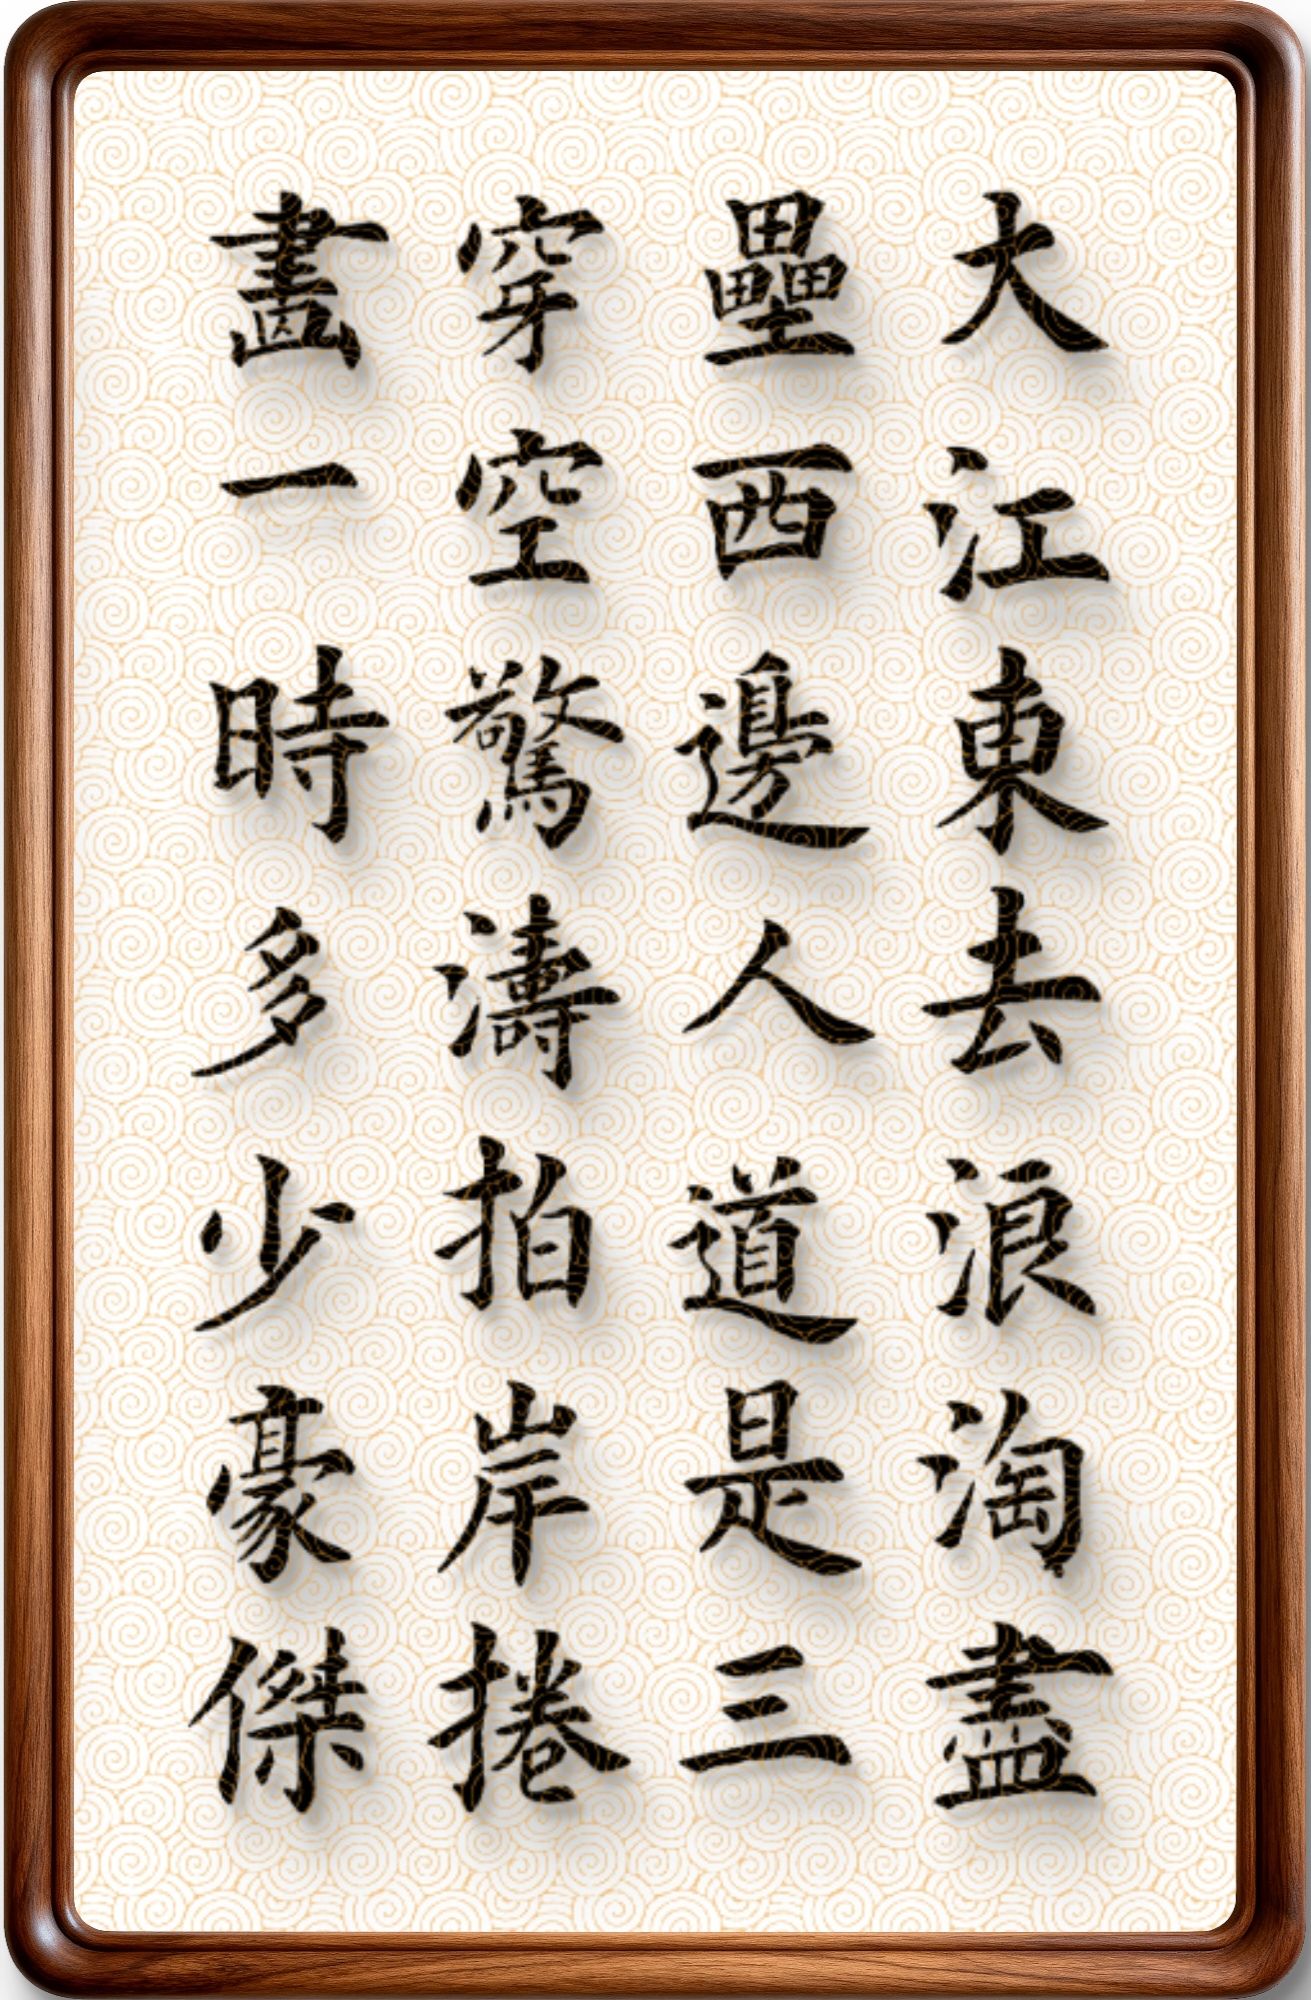 大江東去浪淘盡
壘西邊人道是三
穿空驚濤拍岸捲
畫一時多少豪傑